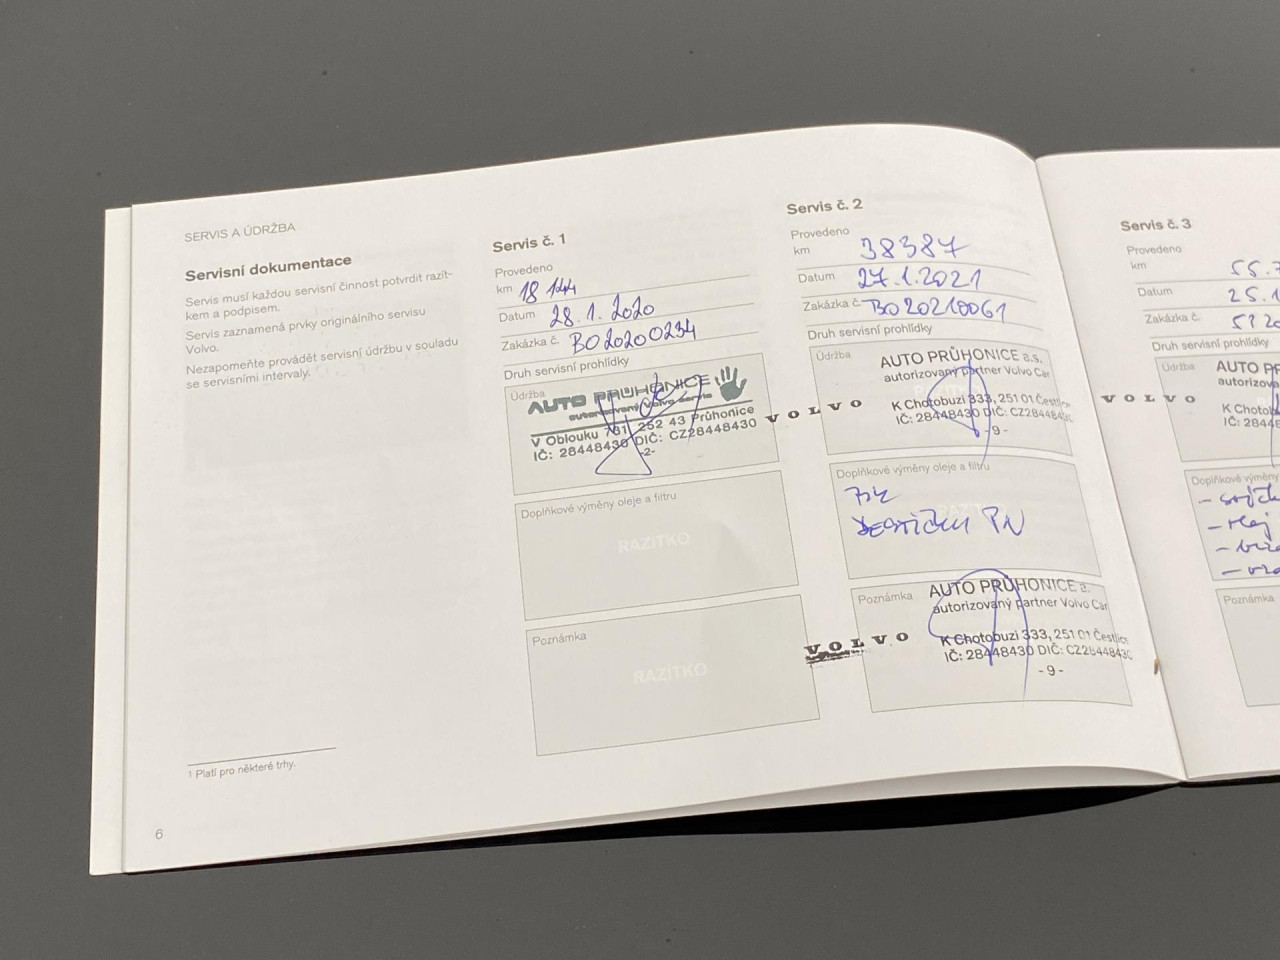 SERVIS A ÚDRŽBA
Servisní dokumentace
Servis musí každou servisní činnost potvrdit razít-
kem a podpisem.
Servis zaznamená prvky originálního servisu
Volvo.
Nezapomeňte provádět servisní údržbu v souladu
se servisními intervaly.
1 Platí pro některé trhy.
6
Servis č. 1
Provedeno
km 18 144
Datum 28.1.2020
Zakázka č. BO20200234
Druh servisní prohlídky
Údržba
AUTO PRŮHONICE
autorizovaný Volvo servis
V Oblouku 731, 252 43 Průhonice
IČ: 28448430 DIČ: CZ28448430
-2-
Doplňkové výměny oleje a filtru
RAZÍTKO
Poznámka
RAZÍTKO
Servis č. 2
Provedeno
km 38387
Datum 27.1.2021
Zakázka č. BO20210061
Druh servisní prohlídky
Údržba
AUTO PRŮHONICE a.s.
autorizovaný partner Volvo Car
VOLVO
K Chotobuzi 333, 251 01 Čestlice
IČ: 28448430 DIČ: CZ28448430
-9-
Doplňkové výměny oleje a filtru
Poznámka
AUTO PRŮHONICE a.
autorizovaný partner Volvo Car
VOLVO
K Chotobuzi 333, 251 01 Čestlice
IČ: 28448430 DIČ: CZ28448430
-9-
Servis č. 3
Provedeno
km 55.7
Datum 25.1
Zakázka č.
Druh servisní prohlídky
Údržba
AUTO PR
autorizova
VOLVO
K Chotob
IČ: 2844
Doplňkové výměny
Poznámka